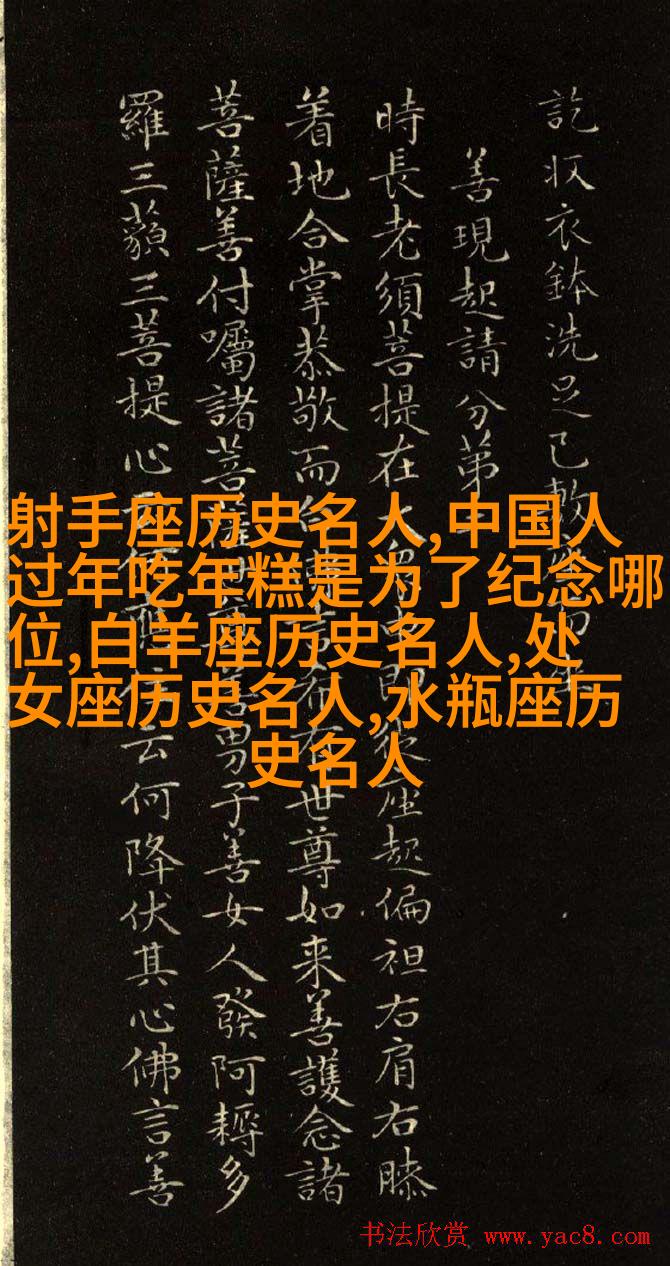 訖収衣鉢洗足已敷
善現起請分第
時長老須菩提在大衆中即從座起偏袒右肩右膝
着地合掌恭敬而白 希有世尊如来善護念諸
菩薩善付囑諸菩薩 善男子善女人發阿耨多
羅三藐三菩提心 云何降伏其心佛言善
射手座历史名人,中国人
过年吃年糕是为了纪念哪
位,白羊座历史名人,处
女座历史名人,水瓶座历
史名人
书法欣赏 www.yac8.com